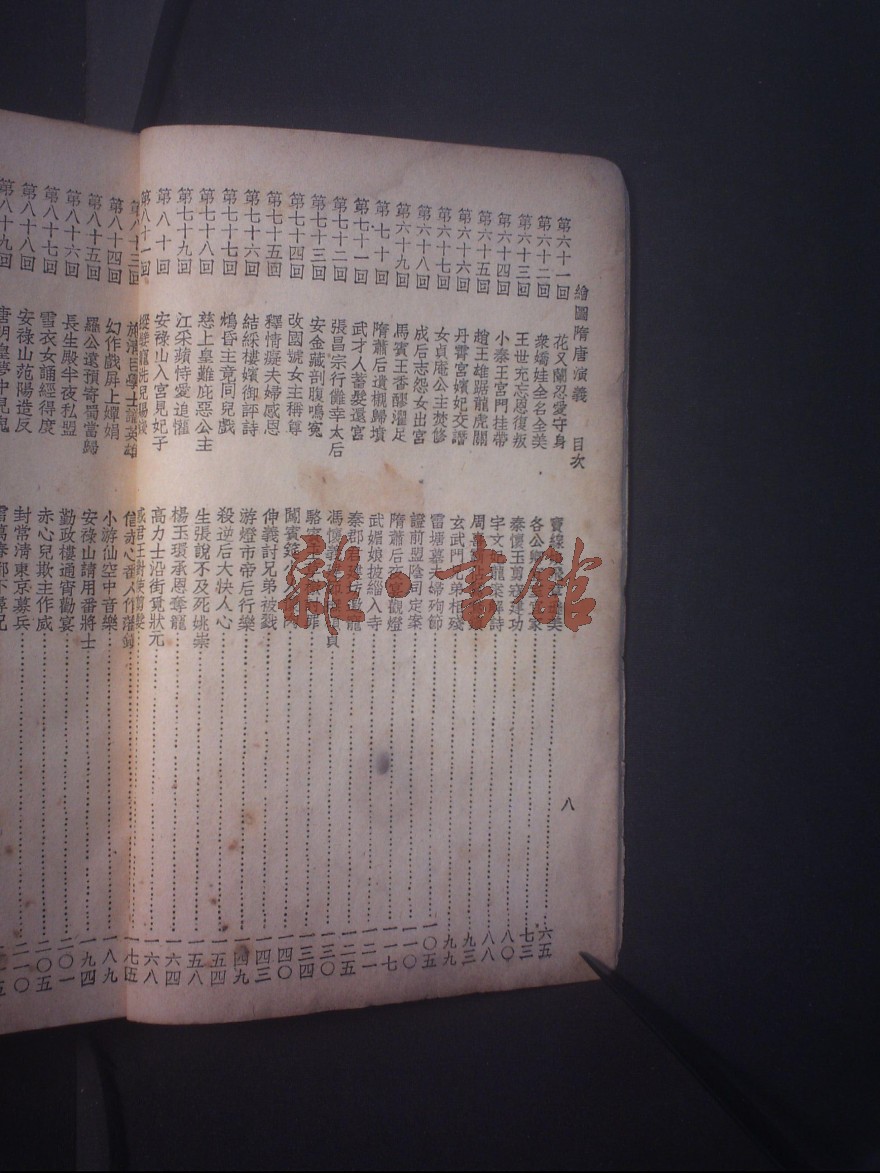 繪圖隋唐演義 目次
八
第六十一回 花又蘭忍愛守身 六五
第六十二回 衆嬌娃全名全美 各公 家 七三
第六十三回 王世充忘恩復叛 秦懷玉剪寇建功 八〇
第六十四回 小秦王宮門挂帶 宇文 龍案 詩 八八
第六十五回 趙王雄踞龍虎關 周 九三
第六十六回 丹霄宮嬪妃交譖 玄武門兄弟相殘 九九
第六十七回 女貞庵公主焚修 雷塘墓夫婦殉節 一〇五
第六十八回 成后志怨女出宮 證前盟陰司定案 一一〇
第六十九回 馬賓王香醪濯足 隋蕭后夜宴觀燈 一一七
第七十回 隋蕭后遺櫬歸墳 武媚娘披緇入寺 一二一
第七十一回 武才人蓄髮還宮 秦郡君 坊邀寵 一二五
第七十二回 張昌宗行儺幸太后 馮懷義 貞 一三〇
第七十三回 安金藏剖腹鳴冤 駱賓王 罪 一三四
第七十四回 改國號女主稱尊 闖賓筵小 一四〇
第七十五回 釋情癡夫婦感恩 伸義討兄弟被戮 一四三
第七十六回 結綵樓嬪御評詩 游燈市帝后行樂 一四九
第七十七回 鴆昏主竟同兒戲 殺逆后大快人心 一五四
第七十八回 慈上皇難庇惡公主 生張說不及死姚崇 一五八
第七十九回 江采蘋恃愛追懽 楊玉環承恩奪寵 一六四
第八十回 安祿山入宮見妃子 高力士沿街覓狀元 一六八
第八十一回 縱嬖寵洗兒賜錢 惑君王對使剪髮 一七五
第八十三回 施青目學士識英雄 信赤心番人作藩鎮
第八十四回 幻作戲屏上嬋娟 小游仙空中音樂 一八九
第八十五回 羅公遠預寄蜀當歸 安祿山請用番將士 一九四
第八十六回 長生殿半夜私盟 勤政樓通宵勸宴 二〇一
第八十七回 雪衣女誦經得度 赤心兒欺主作威 二〇五
第八十八回 安祿山范陽造反 封常清東京募兵 二一〇
第八十九回 唐明皇夢中見鬼 雷萬春都下尋兄
雜·書館